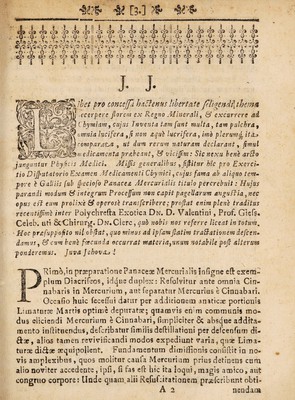 [3.]
J. J.
Libet pro concessa hactenus libertate seligendi thema
excerpere florem ex Regno Minerali, & excurrere ad
Chymiam, cujus Inventa tam sunt multa, tam pulchra,
omnia lucifera, si non æquè lucrifera, imò plerumq; ita
comparata, ut dum rerum naturam declarant, simul
medicamenta præbeant, & vicissim: Sic nexu benè arcto
junguntur Physici Medici. Missis generalibus, sistitur hic pro Exerci-
tio Disputatorio Examen Medicamenti Chymici, cujus fama ab aliquo tem-
pore è Galliis sub specioso Panaceæ Mercurialis titulo percrebuit: Hujus
parandi modum & integrum Processum non capit pagellarum angustia, nec
opus est eum prolixè & operosè transcribere; prostat enim plenè traditus
recentissimè inter Polychresta Exotica DN. D. Valentini, Prof. Giess.
Celeb. uti & Chirurg. DN. Clerc, quod nobis nos referre liceat in totum.
Hoc præsupposito nil obstat, quo minus ad ipsam statim tractationem descen-
damus, & cum benè fœcunda occurrat materia, unum notabile post alterum
ponderemus. Juva Jehova!
PRimò, in præparatione Panaceæ Mercurialis Insigne est exem-
plum Diacriseos, idque duplex: Resolvitur ante omnia Cin-
nabaris in Mercurium, aut separatur Mercurius à Cinnabari.
Occasio huic secessui datur per additionem anaticæ portionis
Limaturæ Martis optimè depuratæ; quamvis enim communis mo-
dus eliciendi Mercurium è Cinnabari, simplicitèr & absque addita-
mento instituendus, describatur similis destillationi per descensum di-
ctæ, alios tamen revivificandi modos expediunt varia, quæ Lima-
turæ dictæ æquipollent. Fundamentum dimissionis consistit in no-
vis amplexibus, quos molitur causa Mercurium prius detinens cum
alio noviter accedente, ipsi, si fas est hic ita loqui, magis amico, aut
congruo corpore: Unde quam alii Resuscitationem præscribunt obti-
A 2
nendam